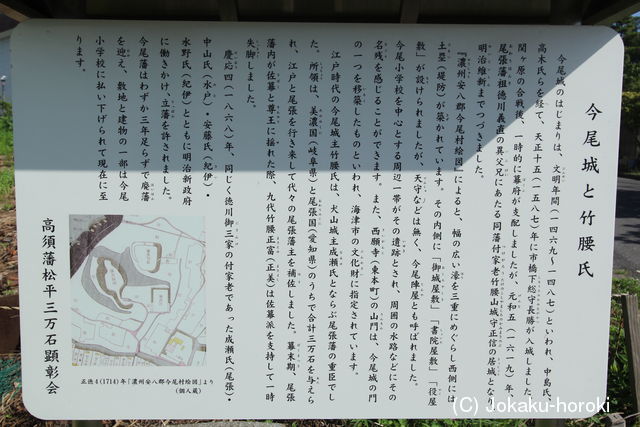 今尾城と竹腰氏
今尾城のはじまりは、文明年間(一四六九〜一四八七)といわれ、中島氏、
高木氏らを経て、天正十五(一五八七)年に市橋下総守長勝が入城しました。
関ヶ原の合戦後、一時的に幕府が支配しましたが、元和五(一六一九)年、
尾張藩祖徳川義直の異父兄にあたる同藩付家老竹腰山城守正信の居城となり
明治維新までつづきました。
『濃州安八郡今尾村絵図』によると、幅の広い濠を三重にめぐらし西側には
土塁(堤防)が築かれています。その内側に「御城屋敷」「書院屋敷」「役屋
敷」が設けられましたが、天守などは無く、今尾陣屋とも呼ばれました。
今尾小学校を中心とする周辺一帯がその遺跡とされ、周囲の水路などにその
名残を感じることができます。また、西願寺(東本町)の山門は、今尾城の門
の一つを移築したものといわれ、海津市の文化財に指定されています。
江戸時代の今尾城主竹腰氏は、犬山城主成瀬氏とならぶ尾張藩の重臣でし
た。所領は、美濃国(岐阜県)と尾張国(愛知県)のうちで合計三万石を与えら
れ、江戸と尾張を行き来して代々の尾張藩主を補佐しました。幕末期、尾張
藩内が佐幕と尊王に揺れた際、九代竹腰正富(正美)は佐幕派を支持して一時
失脚しました。
慶応四(一八六八)年、同じく徳川御三家の付家老であった成瀬氏(尾張)・
中山氏(水戸)・安藤氏(紀伊)・
水野氏(紀伊)とともに明治新政府
に働きかけ、立藩を許されました。
今尾藩はわずか三年足らずで廃藩
を迎え、敷地と建物の一部は今尾
小学校に払い下げられて現在に至
ります。
正徳4(1714)年「濃州安八郡今尾村絵図」より
(個人蔵)
高須藩松平三万石顕彰会
(C) Jokaku-horoki